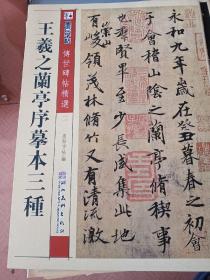 傳世碑帖精選
王羲之蘭亭序摹本三種
永和九年歲在癸丑暮春之初會
于會稽山陰之蘭亭脩稧事
也羣賢畢至少長咸集此地
有崇山峻領茂林脩竹又有清流激